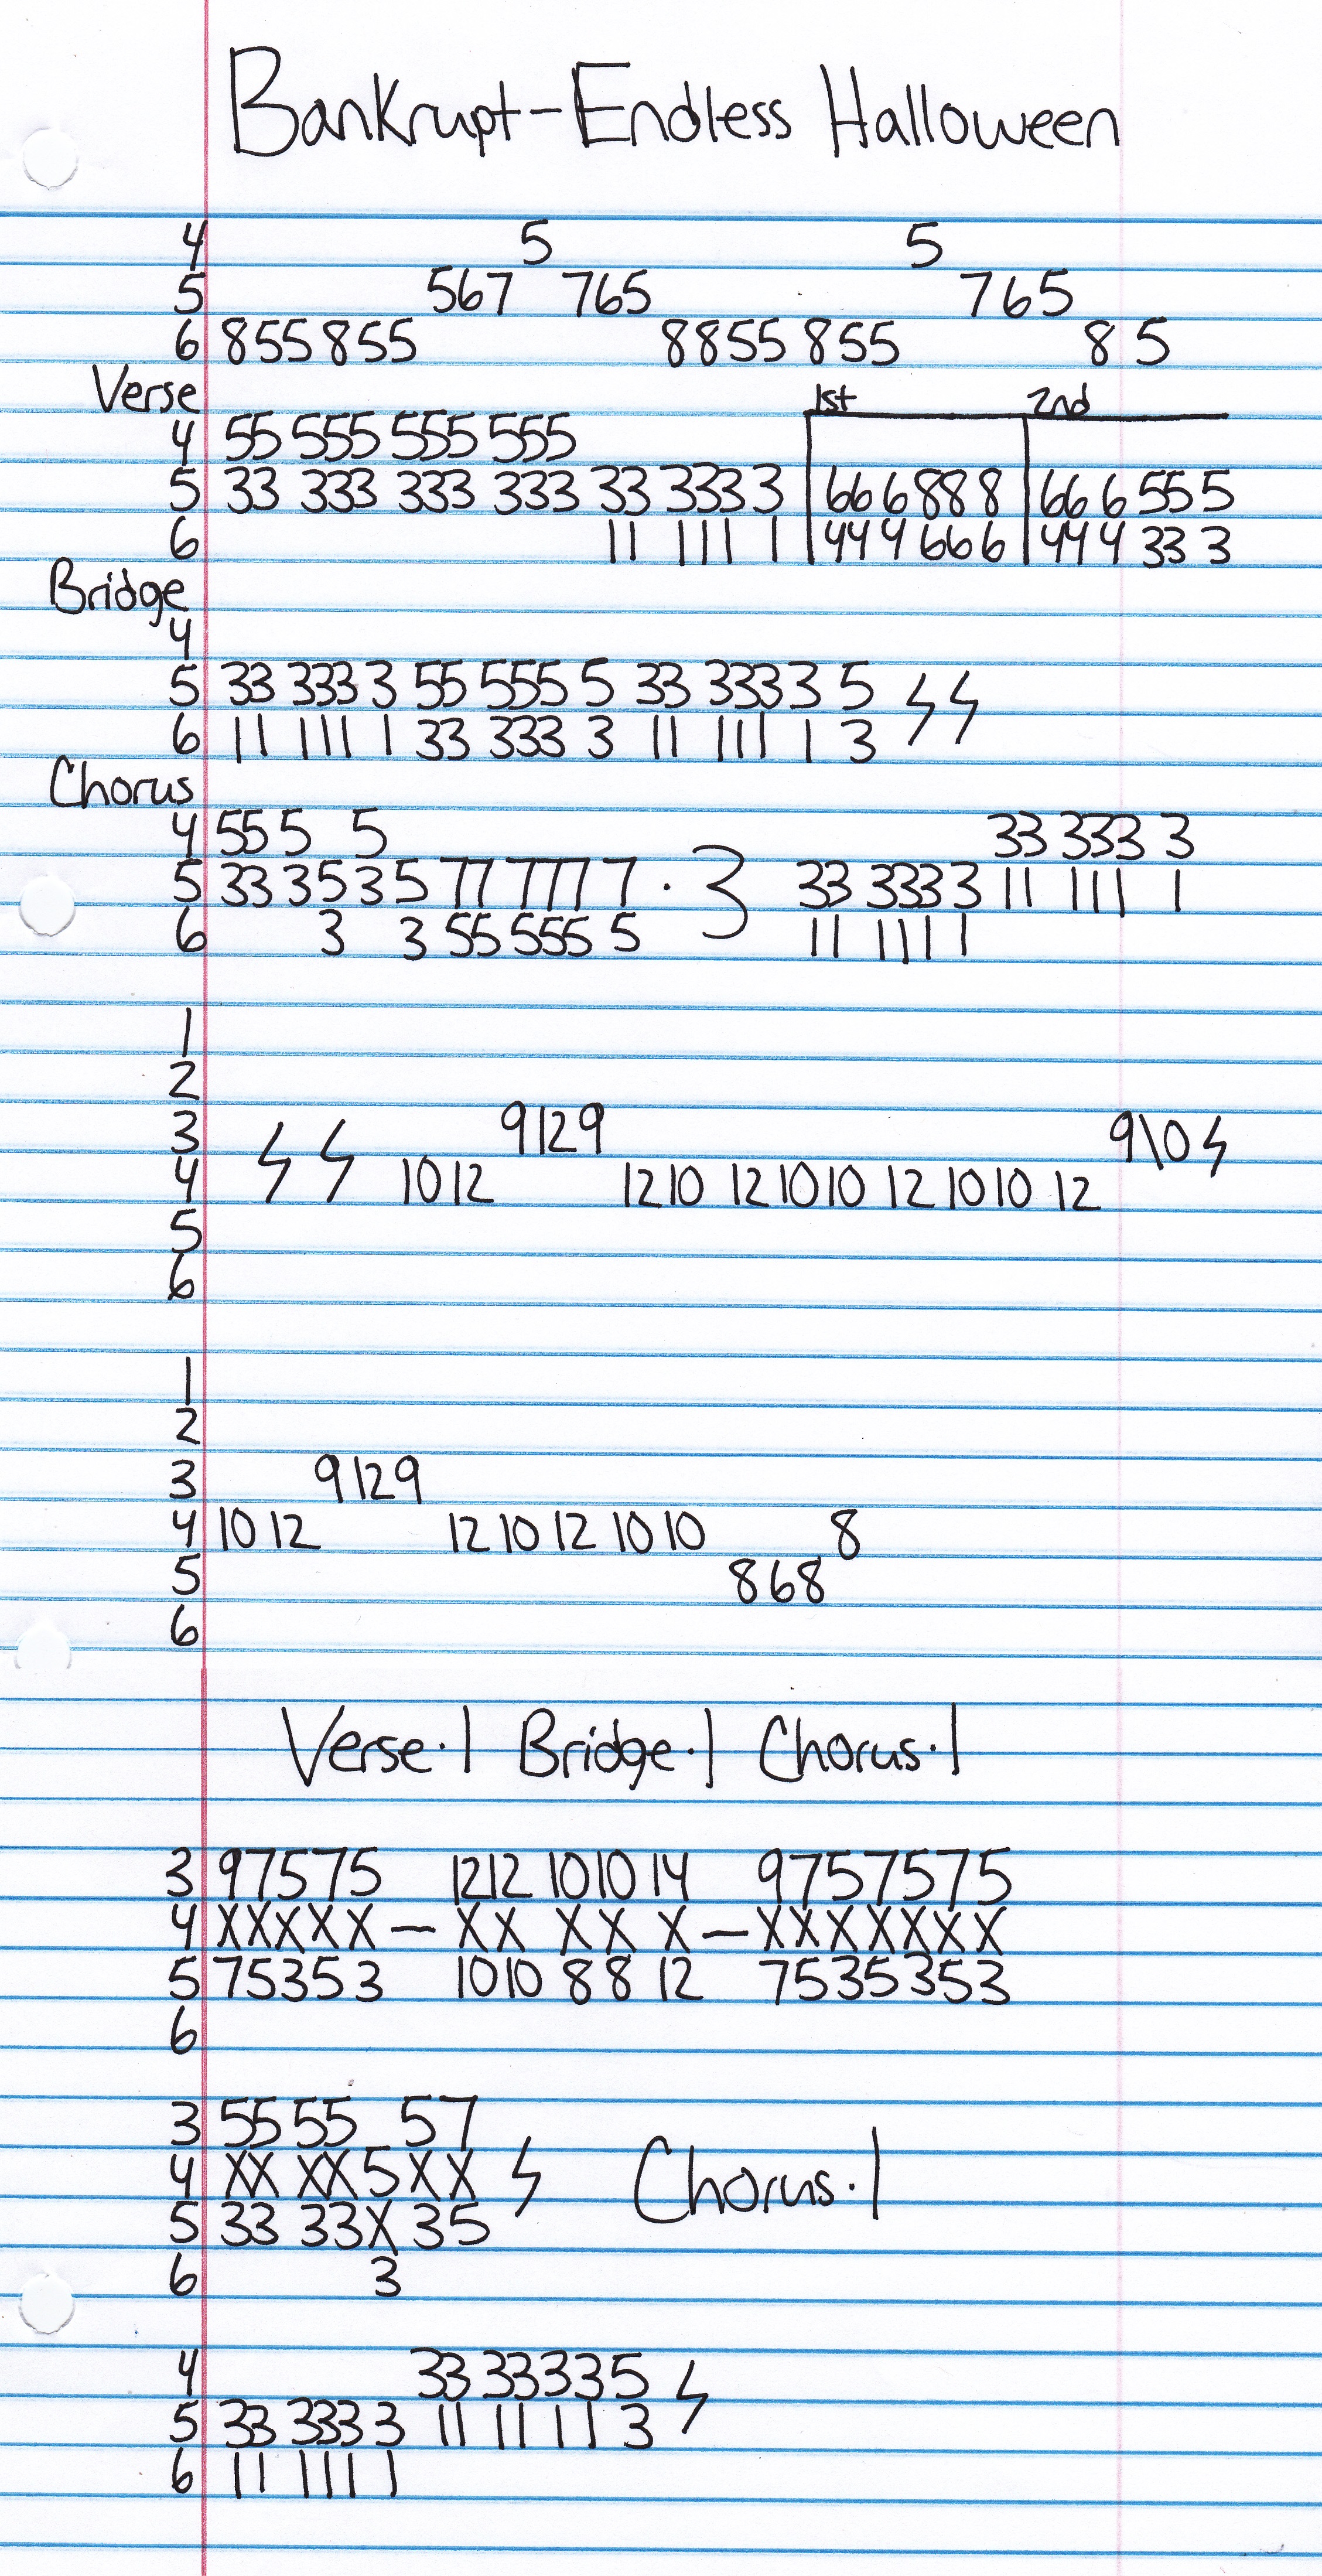 Bankrupt-Endless Halloween
4 5 5
5 567 765 765
6 855855 8855 855 8 5
Verse 1st 2nd
4 55 555 555 555
5 33 333 333 333 33 333 3 666888 666555
6 11 111 1 444666 444333
Bridge
4
5 33 333 3 55 555 5 33 333 3 5
6 11 111 1 33 333 3 11 111 1 3
Chorus
4 55 5 5 33 333 3
5 33 3535 77 777 7 · 3 33 333 3 11 111 1
6 3 3 55 555 5 11 111 1
1
2
3 9 12 9 9\10
4 10 12 12 10 12 10 10 12 10 10 12
5
6
1
2
3 9 12 9
4 10 12 12 10 12 10 10 8
5 868
6
Verse·| Bridge·| Chorus·|
3 97575 12 12 10 10 14 9757575
4 XXXXX — XX XX X — XXXXXXX
5 75353 10 10 8 8 12 7535353
6
3 55 55 57
4 XX XX5XX Chorus·|
5 33 33X35
6 3
4 33 33335
5 33 333 3 11 11 11 3
6 11 111 1